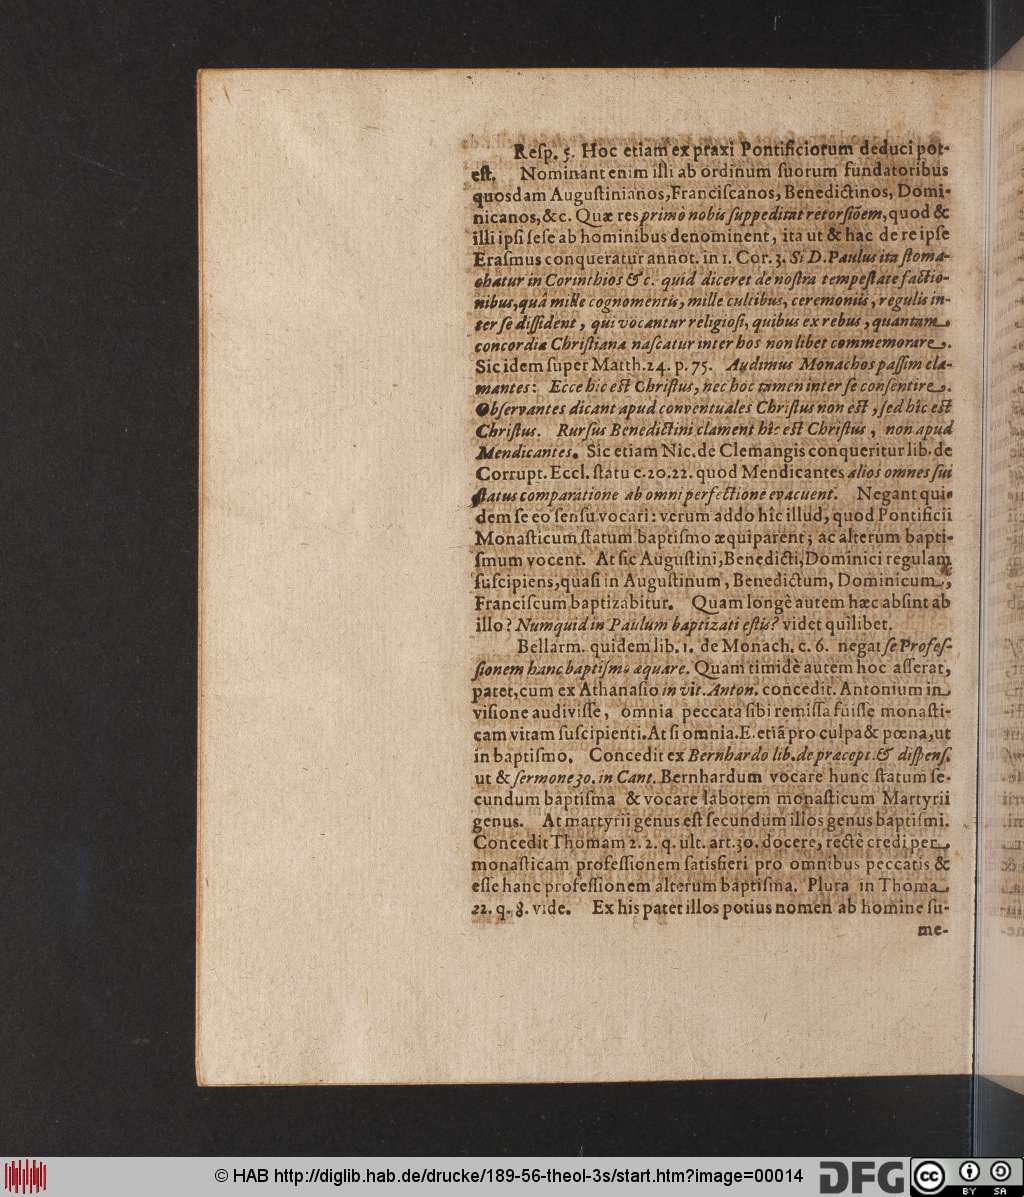 Reſp. 5. Hoc etiam ex praxi Pontificiorum deduci pot-
eſt. Nominant enim illi ab ordinum ſuorum fundatoribus
quosdam Auguſtinianos, Franciſcanos, Benedictinos, Domi-
nicanos, &c. Quæ res primò nobis ſuppeditat retorſiõem, quod &
illi ipſi ſeſe ab hominibus denominent, ita ut & hac de re ipſe
Eraſmus conqueratur annot. in 1. Cor. 3. Si D. Paulus ita ſtoma-
chatur in Corinthios &c. quid diceret de noſtra tempeſtate factio-
nibus, quâ mille cognomentis, mille cultibus, ceremoniis, regulis in-
ter ſe diſſident, qui vocantur religioſi, quibus ex rebus, quantam
concordia Chriſtiana naſcatur inter hos non libet commemorare.
Sic idem ſuper Matth. 24. p. 75. Audimus Monachos paſſim cla-
mantes: Ecce hic eſt Chriſtus, nec hoc tamen inter ſe conſentire.
Obſervantes dicant apud conventuales Chriſtus non eſt, ſed hîc eſt
Chriſtus. Rurſus Benedictini clament hîc eſt Chriſtus, non apud
Mendicantes. Sic etiam Nic. de Clemangis conqueritur lib. de
Corrupt. Eccl. ſtatu c. 20. 22. quod Mendicantes alios omnes ſui
ſtatus comparatione ab omni perfectione evacuent. Negant qui-
dem ſe eo ſenſu vocari: verum addo hîc illud, quod Pontificii
Monaſticum ſtatum baptiſmo æquiparent; ac alterum bapti-
ſmum vocent. At ſic Auguſtini, Benedicti, Dominici regulam
ſuſcipiens, quaſi in Auguſtinum, Benedictum, Dominicum,
Franciſcum baptizabitur. Quam longè autem hæc abſint ab
illo? Numquid in Paulum baptizati eſtis? videt quilibet.
Bellarm. quidem lib. 1. de Monach. c. 6. negat ſe Profeſ-
ſionem hanc baptiſmo æquare. Quam timidè autem hoc aſſerat,
patet, cum ex Athanaſio in vit. Anton. concedit. Antonium in
viſione audiviſſe, omnia peccata ſibi remiſſa fuiſſe monaſti-
cam vitam ſuſcipienti. At ſi omnia. E. etiã pro culpa & pœna, ut
in baptiſmo. Concedit ex Bernhardo lib. de præcept. & diſpenſ.
ut & ſermone 30. in Cant. Bernhardum vocare hunc ſtatum ſe-
cundum baptiſma & vocare laborem monaſticum Martyrii
genus. At martyrii genus eſt ſecundum illos genus baptiſmi.
Concedit Thomam 2. 2. q. ult. art. 30. docere, rectè credi per
monaſticam profeſſionem ſatisfieri pro omnibus peccatis &
eſſe hanc profeſſionem alterum baptiſma. Plura in Thoma
22. q. 8. vide. Ex his patet illos potius nomen ab homine ſu-
me-
© HAB http://diglib.hab.de/drucke/189-56-theol-3s/start.htm?image=00014
DFG
cc
BY SA